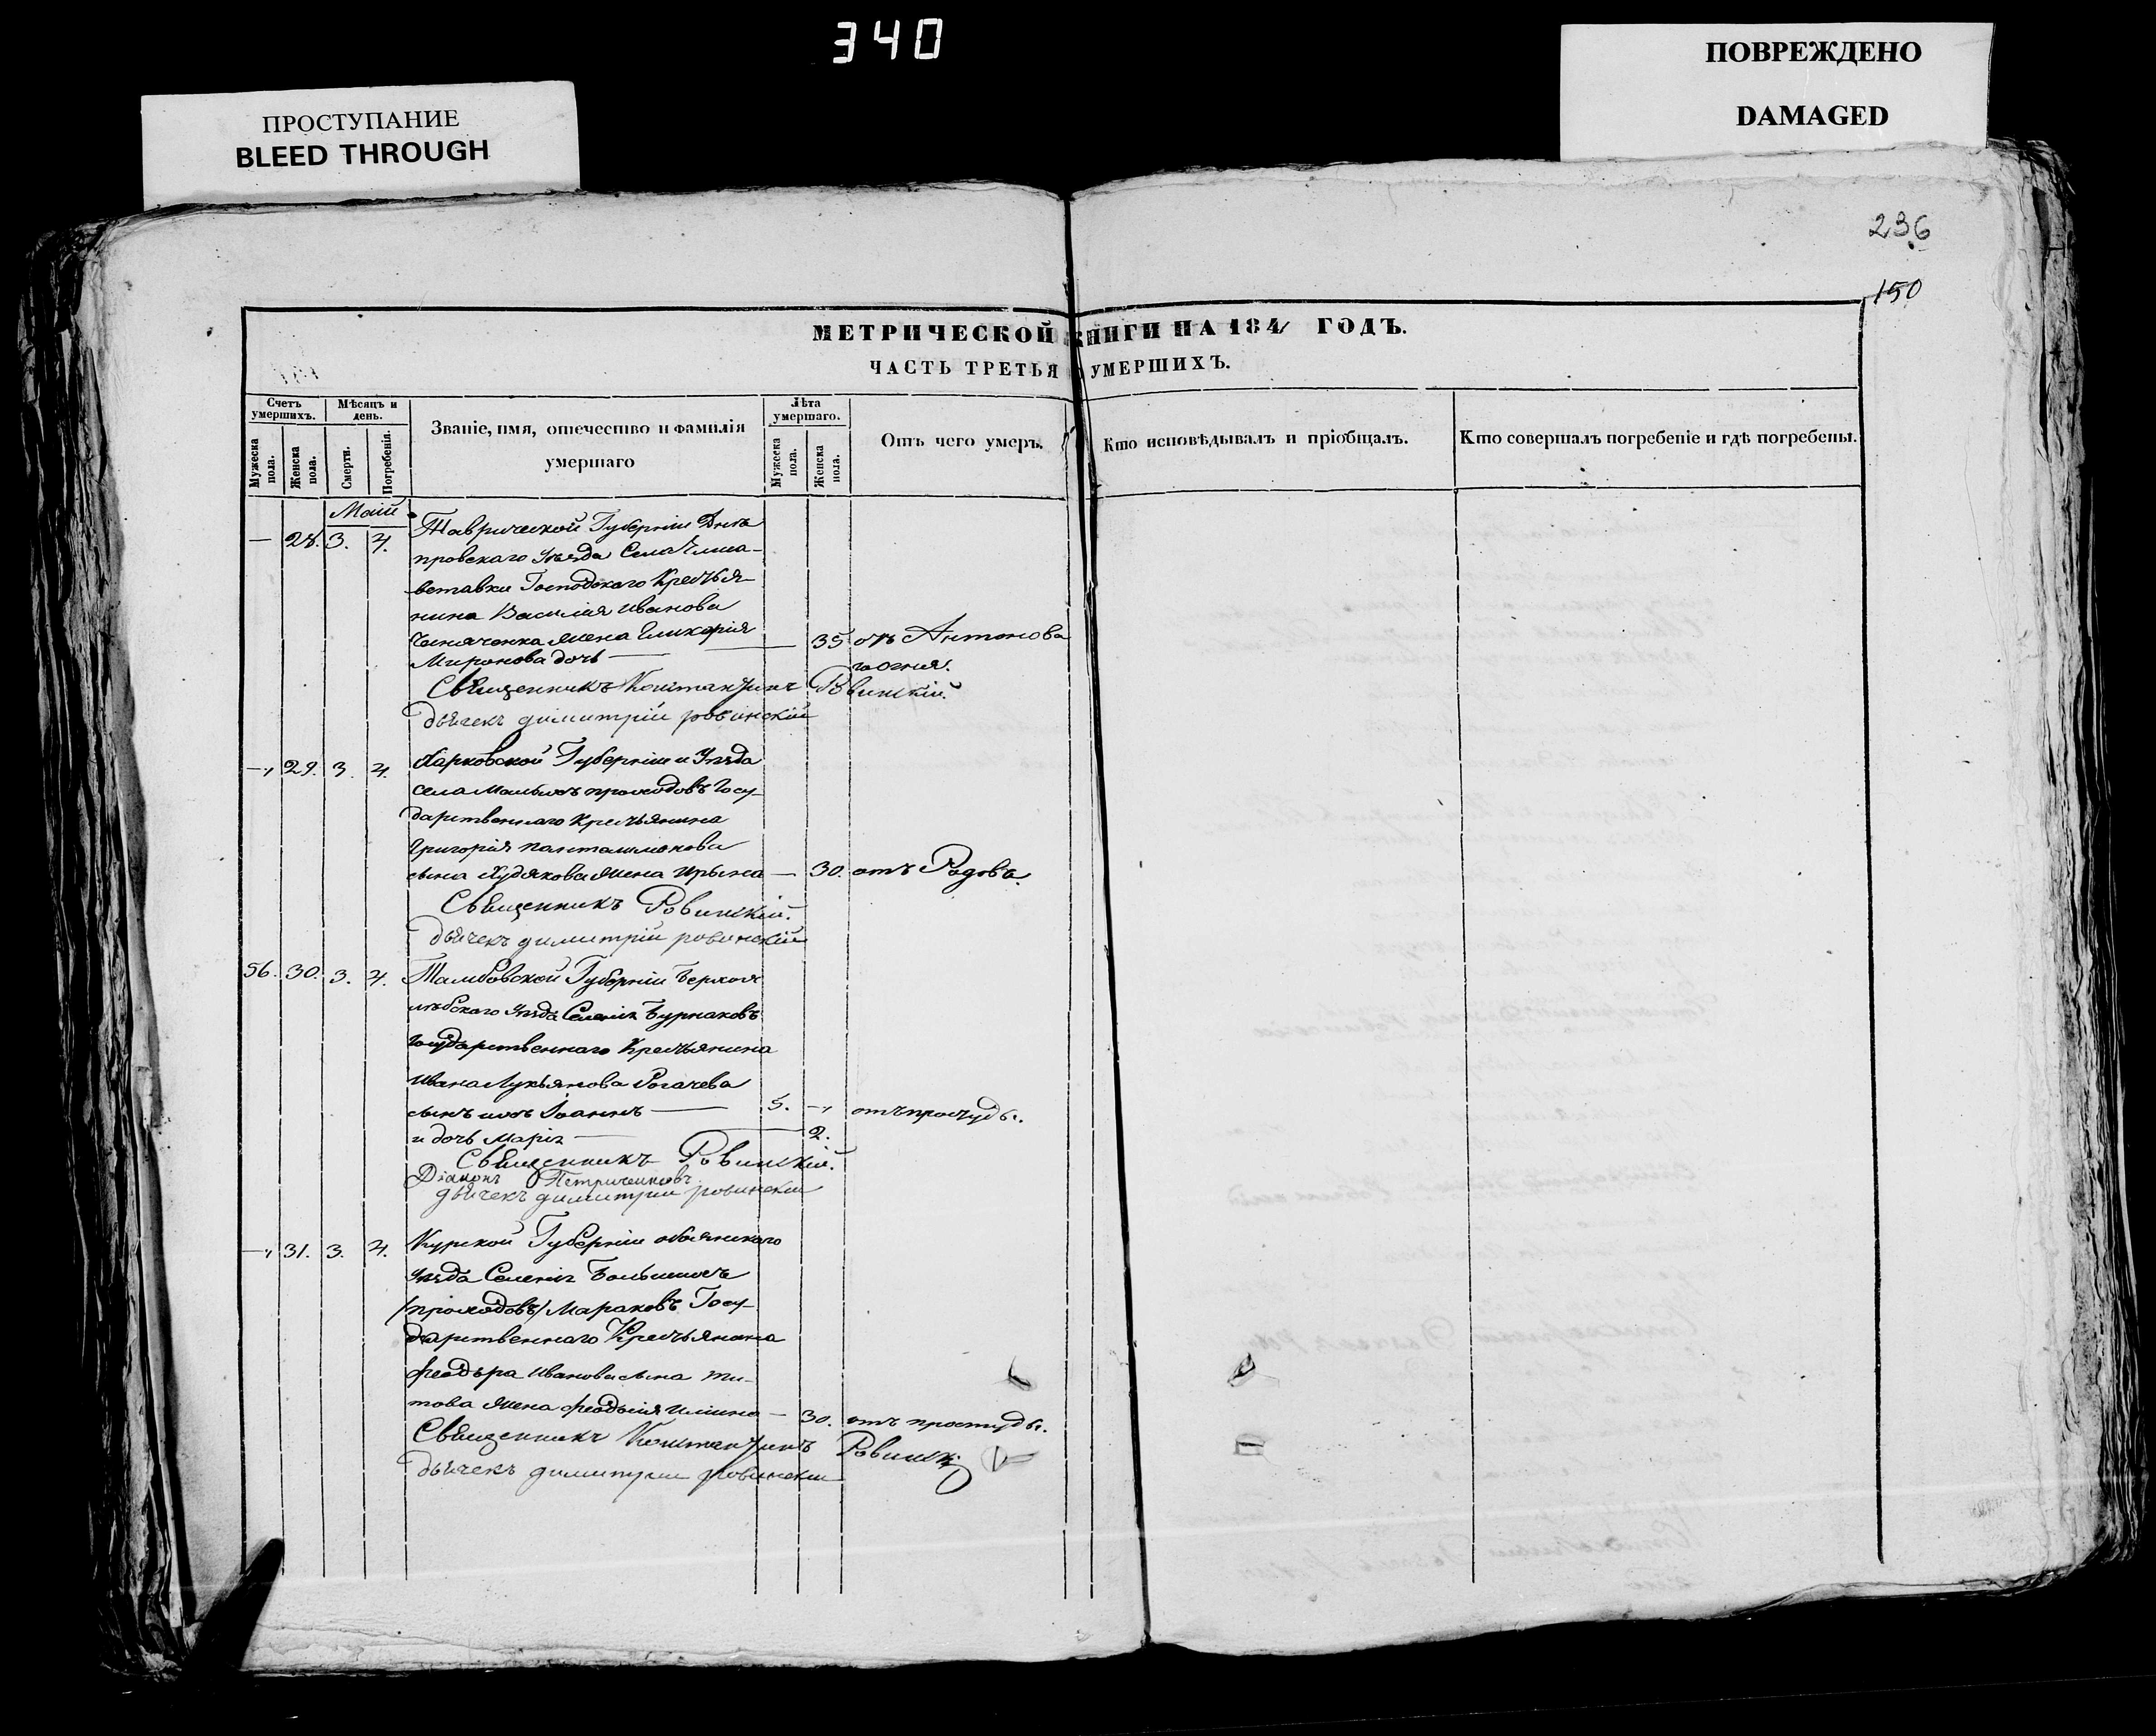 340
ПРОСТУПАНИЕ
BLEED THROUGH
ПОВРЕЖДЕНО
DAMAGED
236
150
МЕТРИЧЕСКОЙ КНИГИ НА 184/ ГОДЪ.
ЧАСТЬ ТРЕТЬЯ УМЕРШИХЪ.
Счетъ умершихъ.
Мужеска пола.
Женска пола.
Мѣсяцъ и день.
Смерти.
Погребенія.
Званіе, имя, отечество и фамилія умершаго
Лѣта умершаго.
Мужеска пола.
Женска пола.
Отъ чего умеръ.
Кто исповѣдывалъ и пріобщалъ.
Кто совершалъ погребеніе и гдѣ погребены.
Маій
— 28. 3. 4. Таврической Губерніи Днѣ
провскаго уѣзда Села Елиса-
ветавки Господскаго Крестья-
нина Василія Иванова
жена Гликерія — 35 отъ Антонова
Миронова дочь — го огня.
Священникъ Константинъ Ровинскій.
дьячекъ димитрій ровинскій
— 29. 3. 4. Харковской Губерніи и Уѣзда
села проходовъ Госу-
дарственнаго Крестьянина
Григорія Панталимонова
сына Худякова жена Ирына — 30. отъ Родовъ.
Священникъ Ровинскій.
дьячекъ димитрій ровинскій
56. 30. 3. 4. Тамбовской Губерніи
уѣзда Селенія Бурнаковъ
государственнаго Крестьянина
Ивана Лукьянова Рогачева
сынъ Іоаннъ — 5. — отъ простуды.
и дочь Марія — 2.
Священникъ Ровинскій.
Діаконъ Петриченковъ
дьячекъ димитрій ровинскій
— 31. 3. 4. Курской Губерніи обоянскаго
уѣзда Селенія
/проходовъ/ Мараковъ Госу-
дарственнаго Крестьянина
феодъра Иванова сына ти-
това жена феодосія — 30. отъ простуды.
Священникъ Константинъ Ровинскій
дьячекъ димитрій ровинскій